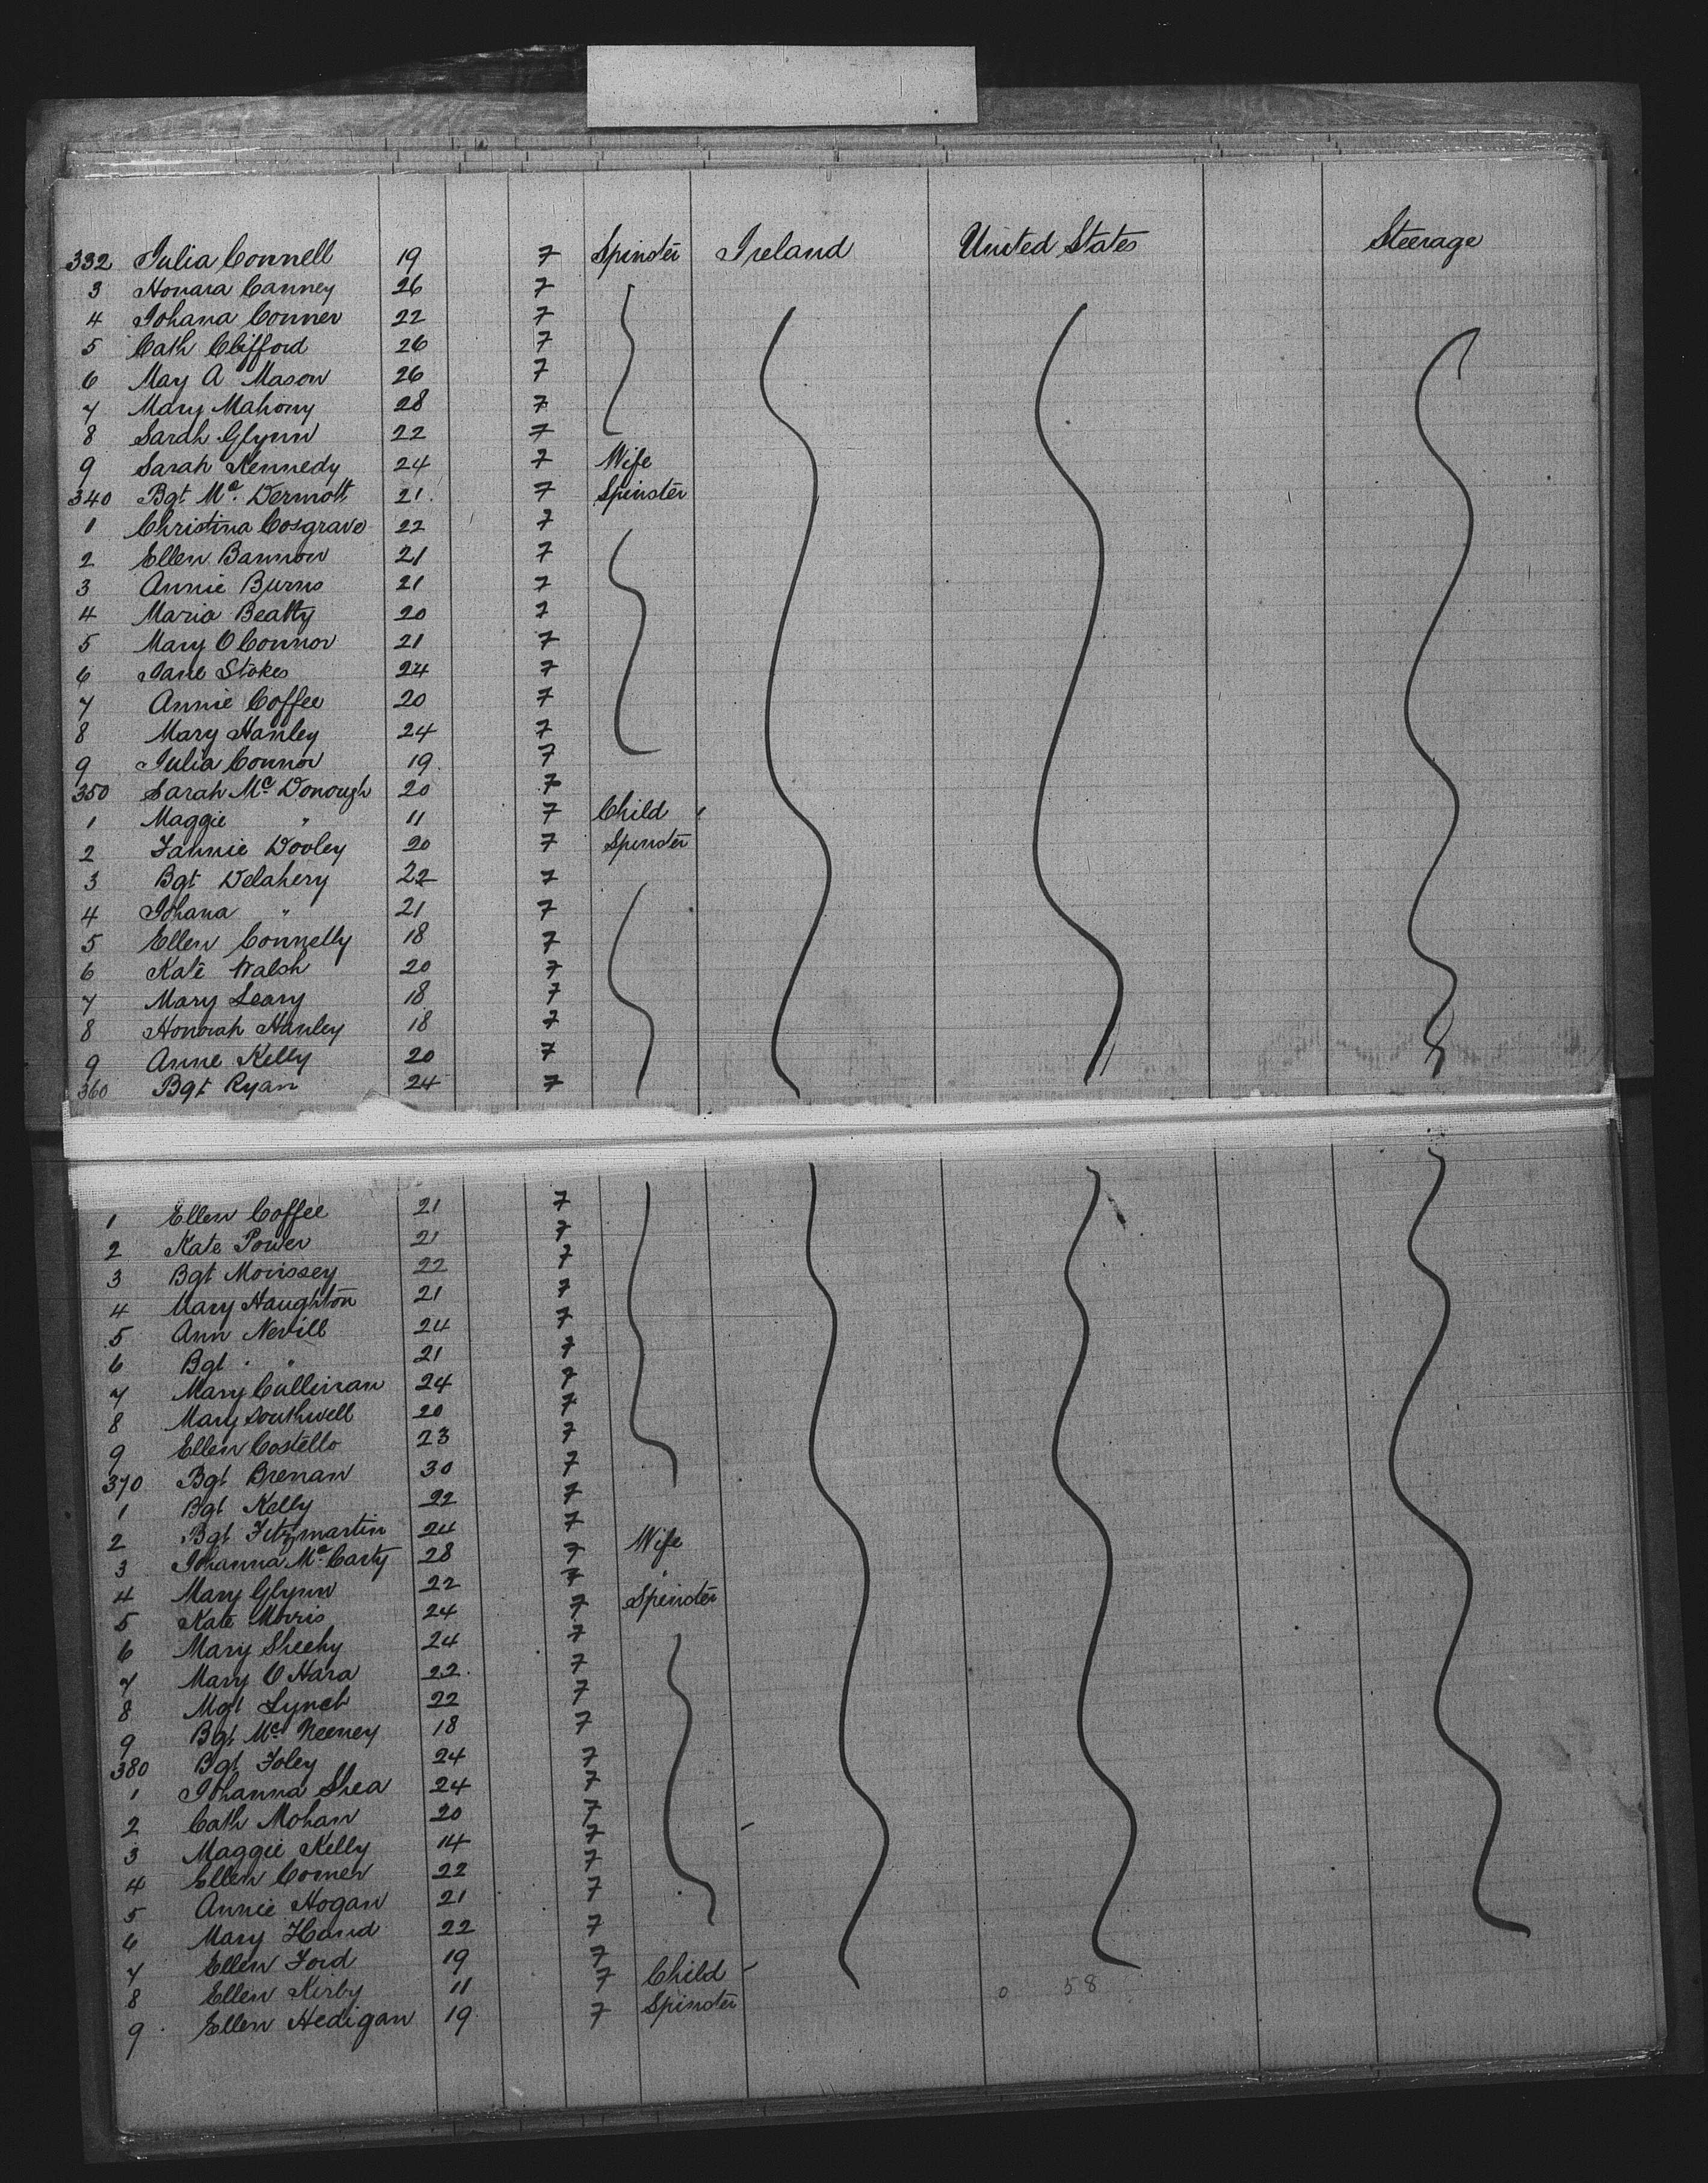 332 Julia Connell 19 7 Spinster Ireland United States Steerage
3 Honara Canney 26 7
4 Johana Conner 22 7
5 Cath Clifford 26 7
6 May A Mason 26 7
7 Mary Mahony 28 7
8 Sarah Glynn 22 7
9 Sarah Kennedy 24 7 Wife
340 Bgt Mc Dermott 21 7 Spinster
1 Christina Cosgrave 22 7
2 Ellen Bannon 21 7
3 Annie Burns 21 7
4 Maria Beatty 20 7
5 Mary O Connor 21 7
6 Jane Stokes 24 7
7 Annie Coffee 20 7
8 Mary Hanley 24 7
9 Julia Connor 19 7
350 Sarah Mc Donough 20 7
1 Maggie " 11 7 Child
2 Fannie Dooley 20 7 Spinster
3 Bgt Delahery 22 7
4 Johana " 21 7
5 Ellen Connelly 18 7
6 Kate Walsh 20 7
7 Mary Leary 18 7
8 Honorah Hanley 18 7
9 Anne Kelly 20 7
360 Bgt Ryan 24 7
1 Ellen Coffee 21 7
2 Kate Power 21 7
3 Bgt Morissey 22 7
4 Mary Naughton 21 7
5 Ann Nevill 24 7
6 Bgt " 21 7
7 Mary Cullinan 24 7
8 Mary Southwell 20 7
9 Ellen Costello 23 7
370 Bgt Brenan 30 7
1 Bgt Kelly 22 7
2 Bgt Fitzmartin 24 7
3 Johanna Mc Carty 28 7 Wife
4 Mary Glynn 22 7
5 Kate Morris 24 7 Spinster
6 Mary Sheehy 24 7
7 Mary O Hara 22 7
8 Mgt Lynch 22 7
9 Bgt Mc Neeney 18 7
380 Bgt Foley 24 7
1 Johanna Shea 24 7
2 Cath Mohan 20 7
3 Maggie Kelly 14 7
4 Ellen Comer 22 7
5 Annie Hogan 21 7
6 Mary Hand 22 7
7 Ellen Ford 19 7
8 Ellen Kirby 11 7 Child
9 Ellen Hedigan 19 7 Spinster
0 58